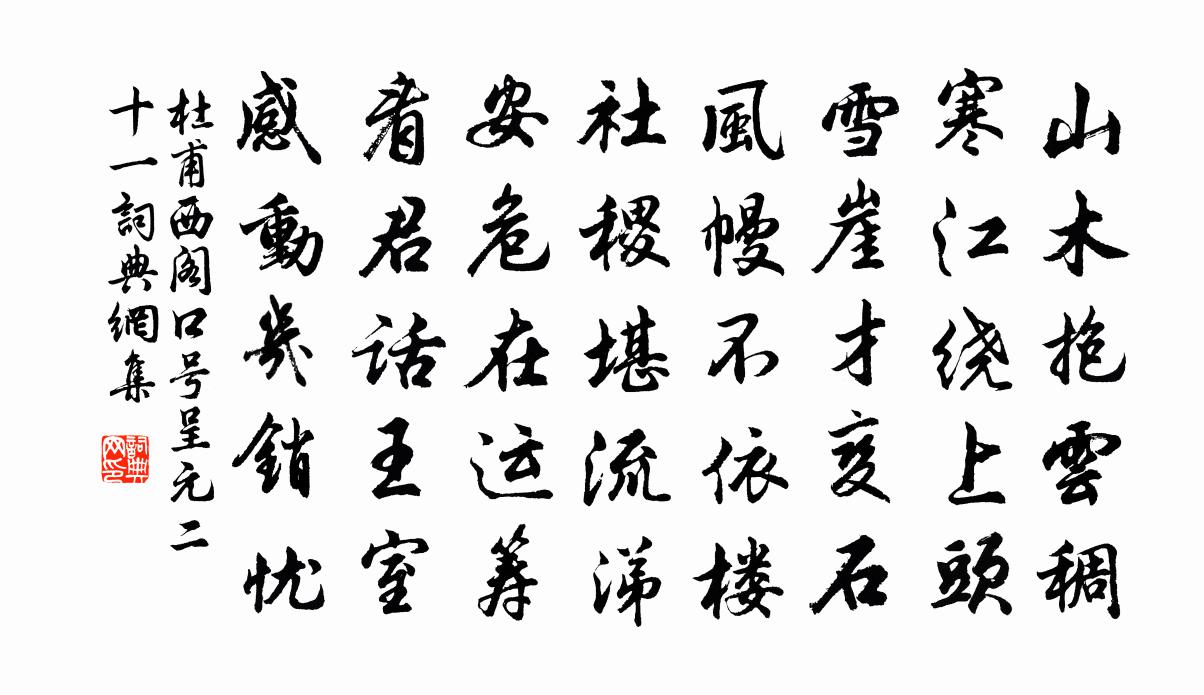 山木抱雲稠
寒江绕上頭
雪崖才变石
風幔不依楼
社稷堪流涕
安危在运筹
看君话王室
感動幾銷忧
杜甫西阁口号呈元二
十一詞典網集
詞典网印